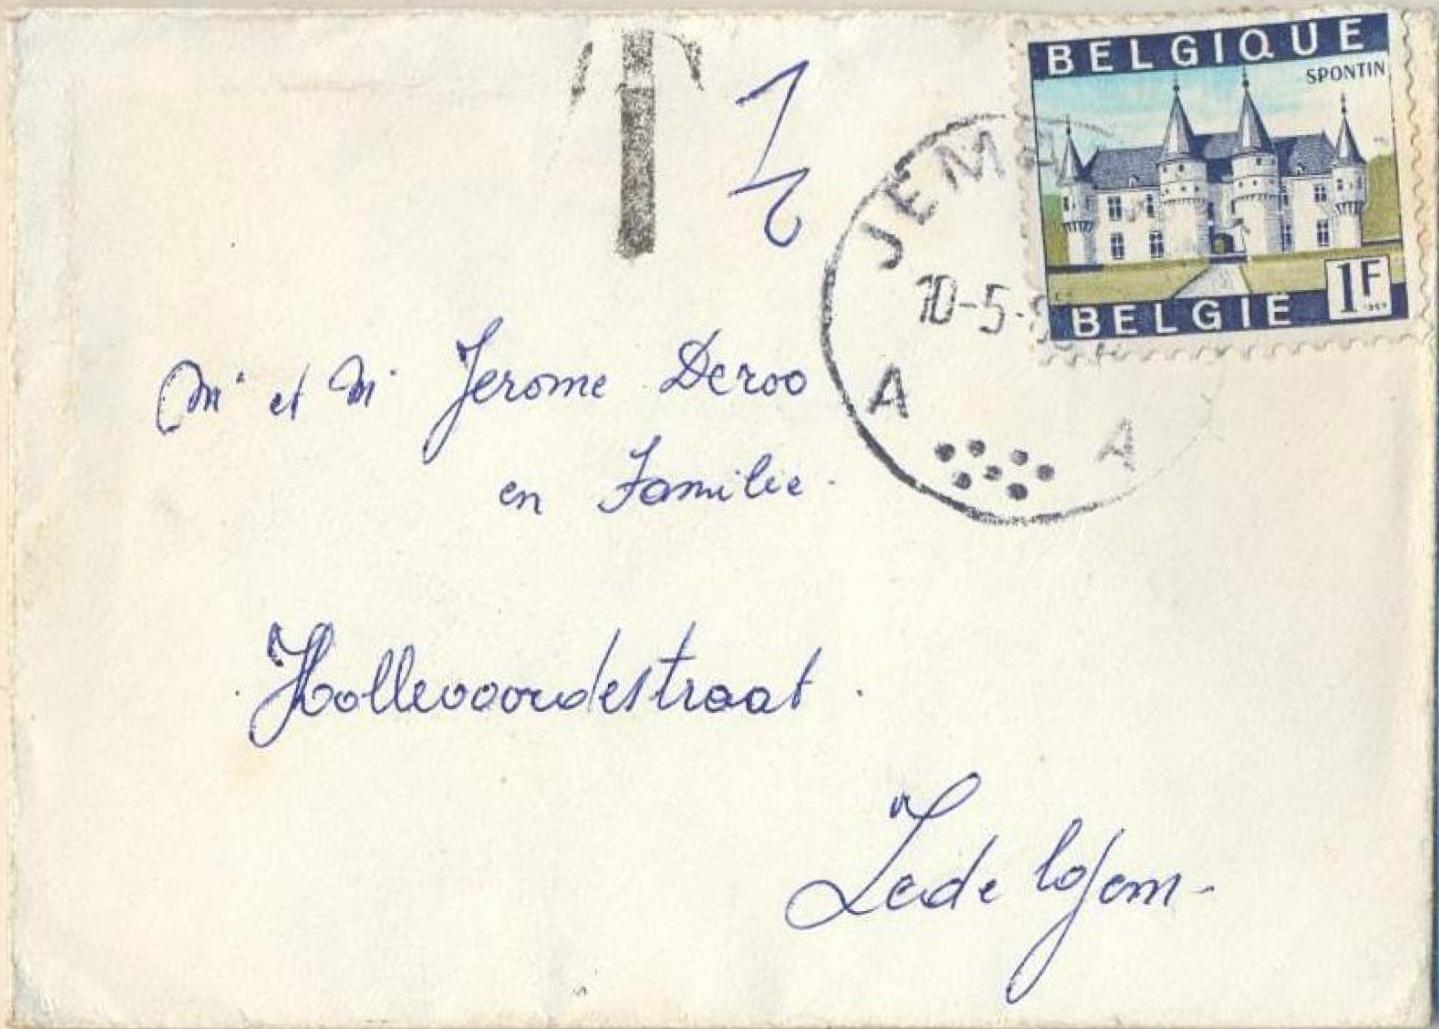 T 1/2
BELGIQUE
SPONTIN
1F
BELGIË
JEM
10-5-
A A
Mr et Mr Jerome Deroo
en Familie.
Hollevoordestraat.
Ledelgem-